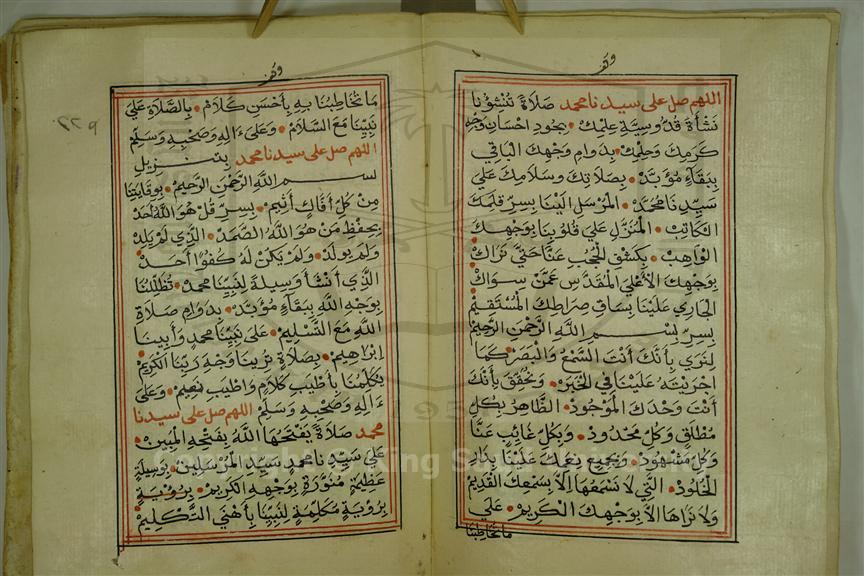 وقف
اللهم صل على سيدنا محمد صلاة تنشؤنا
نشأة قدوسية علمك بجود احسان وجه
كرمك وحلمك بدوام وجهك الباقي
ببقاء مؤبد بصلاتك وسلامك على
سيدنا محمد المرسل الينا بسر قلمك
الكاتب المنزل على قلوبنا بوجهك
الواهب بكشف الحجب عنا حتى نراك
بوجهك الأعلى المقدس عمن سواك
الجاري علينا بساق صراطك المستقيم
بسر بسم الله الرحمن الرحيم
لنرى بأنك أنت السمع والبصر كما
اجريته علينا في الخبر ونحقق بأنك
أنت وحدك الموجود الظاهر بكل
مطلق وكل محدود وبكل غائب عنا
وكل مشهود وبجميع نعمك علينا بدار
الخلود التي لا نسمعها إلا بسمعك القديم
ولا نراها الا بوجهك الكريم على
ما تخاطبنا
وقف
ما تخاطبنا به بأحسن كلام بالصلاة على
نبينا مع السلام وعلى ءاله وصحبه وسلم
اللهم صل على سيدنا محمد بتنزيل
بسم الله الرحمن الرحيم بوقايتنا
من كل أفاك أثيم بسر قل هو الله أحد
بحفظ من هو الله الصمد الذي لم يلد
ولم يولد ولم يكن له كفوا أحد
الذي أنشأ وسيلة لنبينا محمد تظللنا
بوجه الله ببقاء مؤبد بدوام صلاة
الله مع التسليم على نبينا محمد وأبينا
إبراهيم بصلاة ترينا وجه ربنا الكريم
يكلمنا بأطيب كلام واطيب نعيم وعلى
ءاله وصحبه وسلم اللهم صل على سيدنا
محمد صلاة يفتحها الله بفتحه المبين
على سيدنا محمد سيد المرسلين بوسيلة
عظيمة منورة بوجهه الكريم برؤية
برؤية مكلمة لنبينا بأهنى التكليم